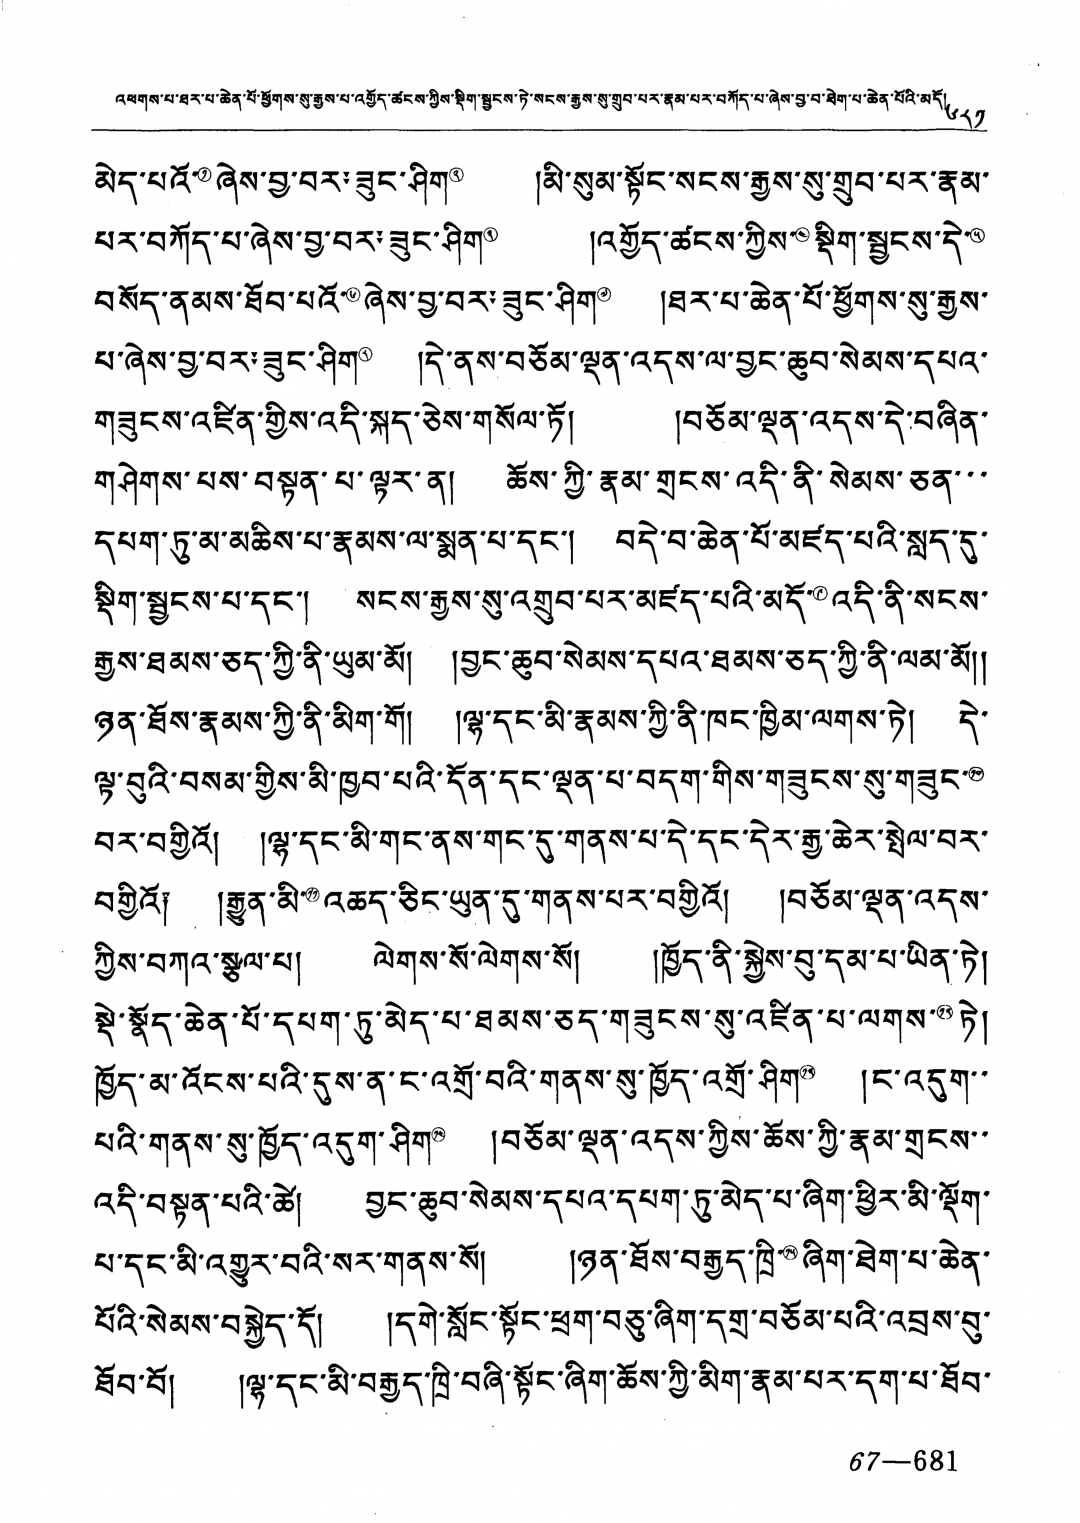 འཕགས་པ་ཐར་པ་ཆེན་པོ་ཕྱོགས་སུ་རྒྱས་པ་འགྱོད་ཚངས་ཀྱིས་སྡིག་སྦྱངས་ཏེ་སངས་རྒྱས་སུ་གྲུབ་པར་རྣམ་པར་བཀོད་པ་ཞེས་བྱ་བ་ཐེག་པ་ཆེན་པོའི་མདོ། ༦༨༡
མེད་པའོ་①ཞེས་བྱ་བར་ཟུང་ཤིག② །མི་སུམ་སྟོང་སངས་རྒྱས་སུ་གྲུབ་པར་རྣམ་
པར་བཀོད་པ་ཞེས་བྱ་བར་ཟུང་ཤིག③ །འགྱོད་ཚངས་ཀྱིས་④སྡིག་སྦྱངས་དེ་⑤
བསོད་ནམས་ཐོབ་པའོ་⑥ཞེས་བྱ་བར་ཟུང་ཤིག⑦ །ཐར་པ་ཆེན་པོ་ཕྱོགས་སུ་རྒྱས་
པ་ཞེས་བྱ་བར་ཟུང་ཤིག⑧ །དེ་ནས་བཅོམ་ལྡན་འདས་ལ་བྱང་ཆུབ་སེམས་དཔའ་
གཟུངས་འཛིན་གྱིས་འདི་སྐད་ཅེས་གསོལ་ཏོ། །བཅོམ་ལྡན་འདས་དེ་བཞིན་
གཤེགས་པས་བསྟན་པ་ལྟར་ན། ཆོས་ཀྱི་རྣམ་གྲངས་འདི་ནི་སེམས་ཅན་་་
དཔག་ཏུ་མ་མཆིས་པ་རྣམས་ལ་སྨན་པ་དང་། བདེ་བ་ཆེན་པོ་མཛད་པའི་སླད་དུ་
སྡིག་སྦྱངས་པ་དང་། སངས་རྒྱས་སུ་འགྲུབ་པར་མཛད་པའི་མདོ་⑨འདི་ནི་སངས་
རྒྱས་ཐམས་ཅད་ཀྱི་ནི་ཡུམ་མོ། །བྱང་ཆུབ་སེམས་དཔའ་ཐམས་ཅད་ཀྱི་ནི་ལམ་མོ།།
ཉན་ཐོས་རྣམས་ཀྱི་ནི་མིག་གོ། །ལྷ་དང་མི་རྣམས་ཀྱི་ནི་ཁང་ཁྱིམ་ལགས་ཏེ། དེ་
ལྟ་བུའི་བསམ་གྱིས་མི་ཁྱབ་པའི་དོན་དང་ལྡན་པ་བདག་གིས་གཟུངས་སུ་གཟུང་⑩
བར་བགྱིའོ། །ལྷ་དང་མི་གང་ནས་གང་དུ་གནས་པ་དེ་དང་དེར་རྒྱ་ཆེར་སྤེལ་བར་
བགྱིའོ། །རྒྱུན་མི་⑪འཆད་ཅིང་ཡུན་དུ་གནས་པར་བགྱིའོ། །བཅོམ་ལྡན་འདས་
ཀྱིས་བཀའ་སྩལ་པ། ལེགས་སོ་ལེགས་སོ། །ཁྱོད་ནི་སྐྱེས་བུ་དམ་པ་ཡིན་ཏེ།
སྡེ་སྣོད་ཆེན་པོ་དཔག་ཏུ་མེད་པ་ཐམས་ཅད་གཟུངས་སུ་འཛིན་པ་ལགས་⑫ཏེ།
ཁྱོད་མ་འོངས་པའི་དུས་ན་ང་འགྲོ་བའི་གནས་སུ་ཁྱོད་འགྲོ་ཤིག⑬ །ང་འདུག་་
པའི་གནས་སུ་ཁྱོད་འདུག་ཤིག⑭ །བཅོམ་ལྡན་འདས་ཀྱིས་ཆོས་ཀྱི་རྣམ་གྲངས་་
འདི་བསྟན་པའི་ཚེ། བྱང་ཆུབ་སེམས་དཔའ་དཔག་ཏུ་མེད་པ་ཞིག་ཕྱིར་མི་ལྡོག་
པ་དང་མི་འགྱུར་བའི་སར་གནས་སོ། །ཉན་ཐོས་བརྒྱད་ཁྲི་⑮ཞིག་ཐེག་པ་ཆེན་
པོའི་སེམས་བསྐྱེད་དོ། །དགེ་སློང་སྟོང་ཕྲག་བཅུ་ཞིག་དགྲ་བཅོམ་པའི་འབྲས་བུ་
ཐོབ་བོ། །ལྷ་དང་མི་བརྒྱད་ཁྲི་བཞི་སྟོང་ཞིག་ཆོས་ཀྱི་མིག་རྣམ་པར་དག་པ་ཐོབ་
67—681